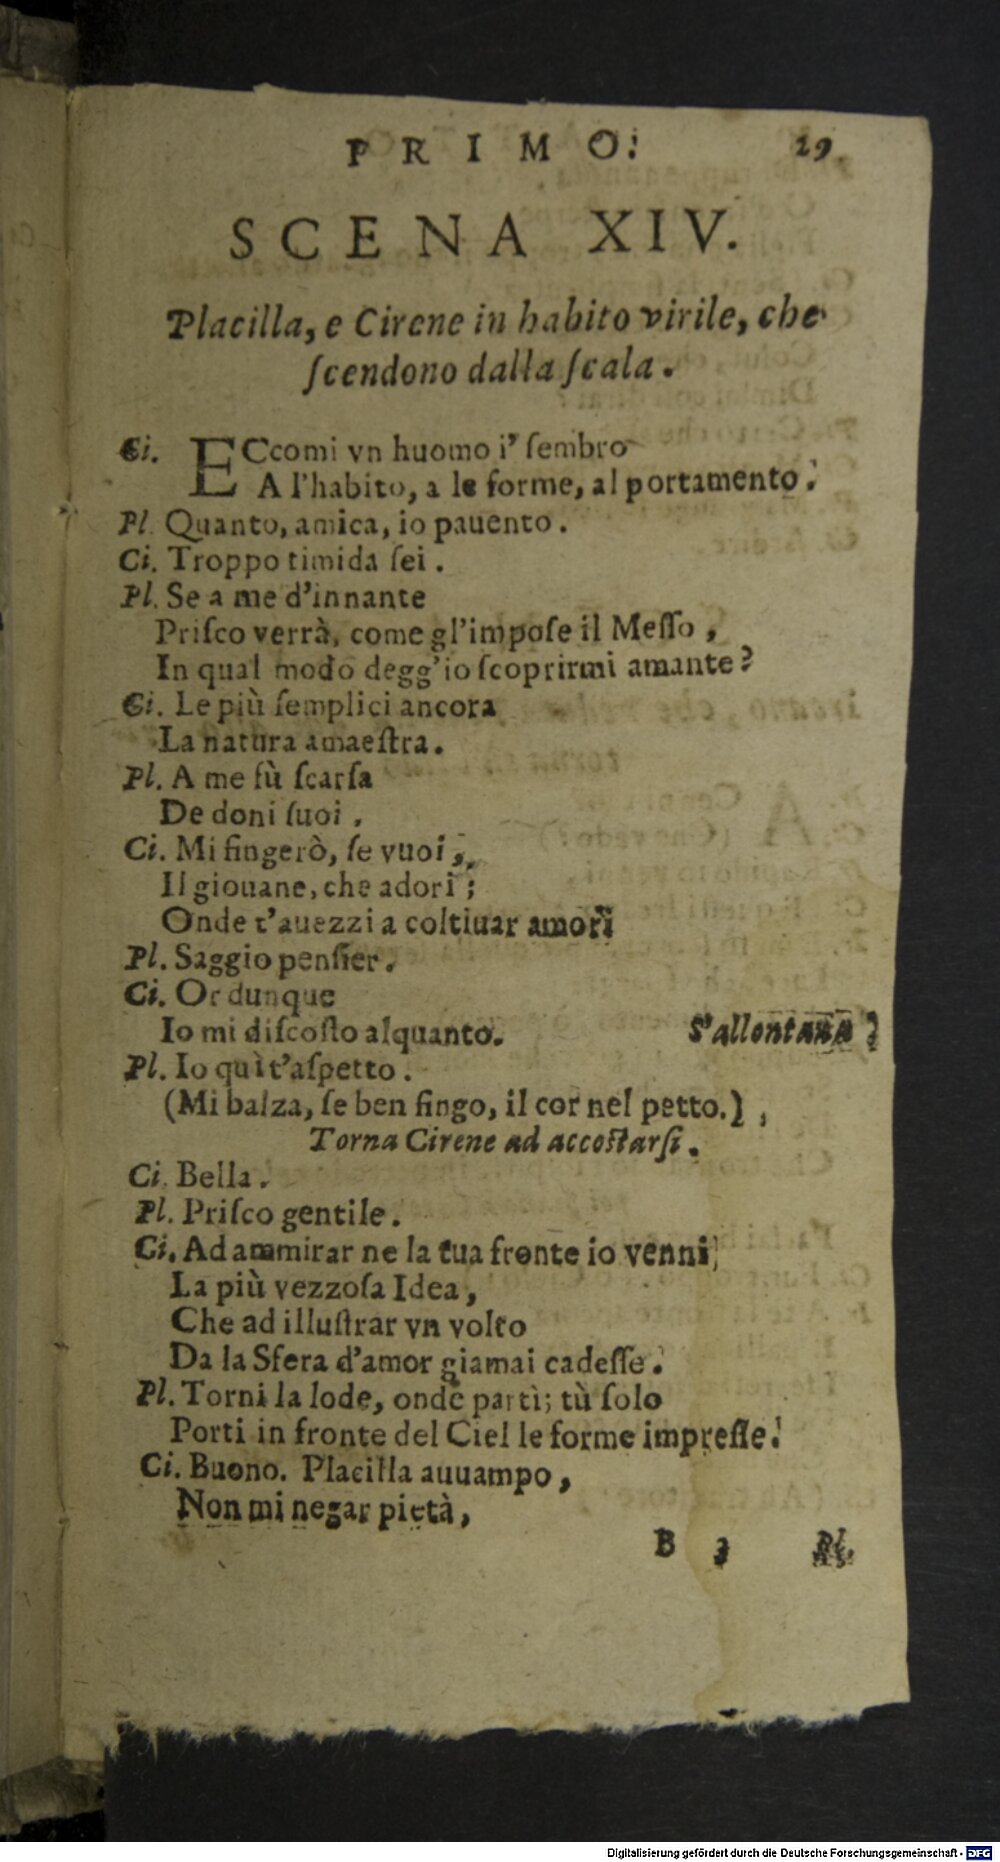 PRIMO. 29
SCENA XIV.
Placilla, e Cirene in habito virile, che
ſcendono dalla ſcala.
Ci. ECcomi vn huomo i' ſembro
A l'habito, a le forme, al portamento.
Pl. Quanto, amica, io pauento.
Ci. Troppo timida ſei.
Pl. Se a me d'innante
Priſco verrà, come gl'impoſe il Meſſo,
In qual modo degg'io ſcoprirmi amante?
Ci. Le più ſemplici ancora
La natura amaeſtra.
Pl. A me fù ſcarſa
De doni ſuoi.
Ci. Mi fingerò, ſe vuoi,
Il giouane, che adori;
Onde t'auezzi a coltiuar amori
Pl. Saggio penſier.
Ci. Or dunque
Io mi diſcoſto alquanto. S'allontana
Pl. Io quì t'aſpetto.
(Mi balza, ſe ben fingo, il cor nel petto.)
Torna Cirene ad accoſtarſi.
Ci. Bella.
Pl. Priſco gentile.
Ci. Ad ammirar ne la tua fronte io venni
La più vezzoſa Idea,
Che ad illuſtrar vn volto
Da la Sfera d'amor giamai cadeſſe.
Pl. Torni la lode, onde partì; tù ſolo
Porti in fronte del Ciel le forme impreſſe.
Ci. Buono. Placilla auuampo,
Non mi negar pietà,
B 3 Pl.
Digitalisierung gefördert durch die Deutsche Forschungsgemeinschaft - DFG